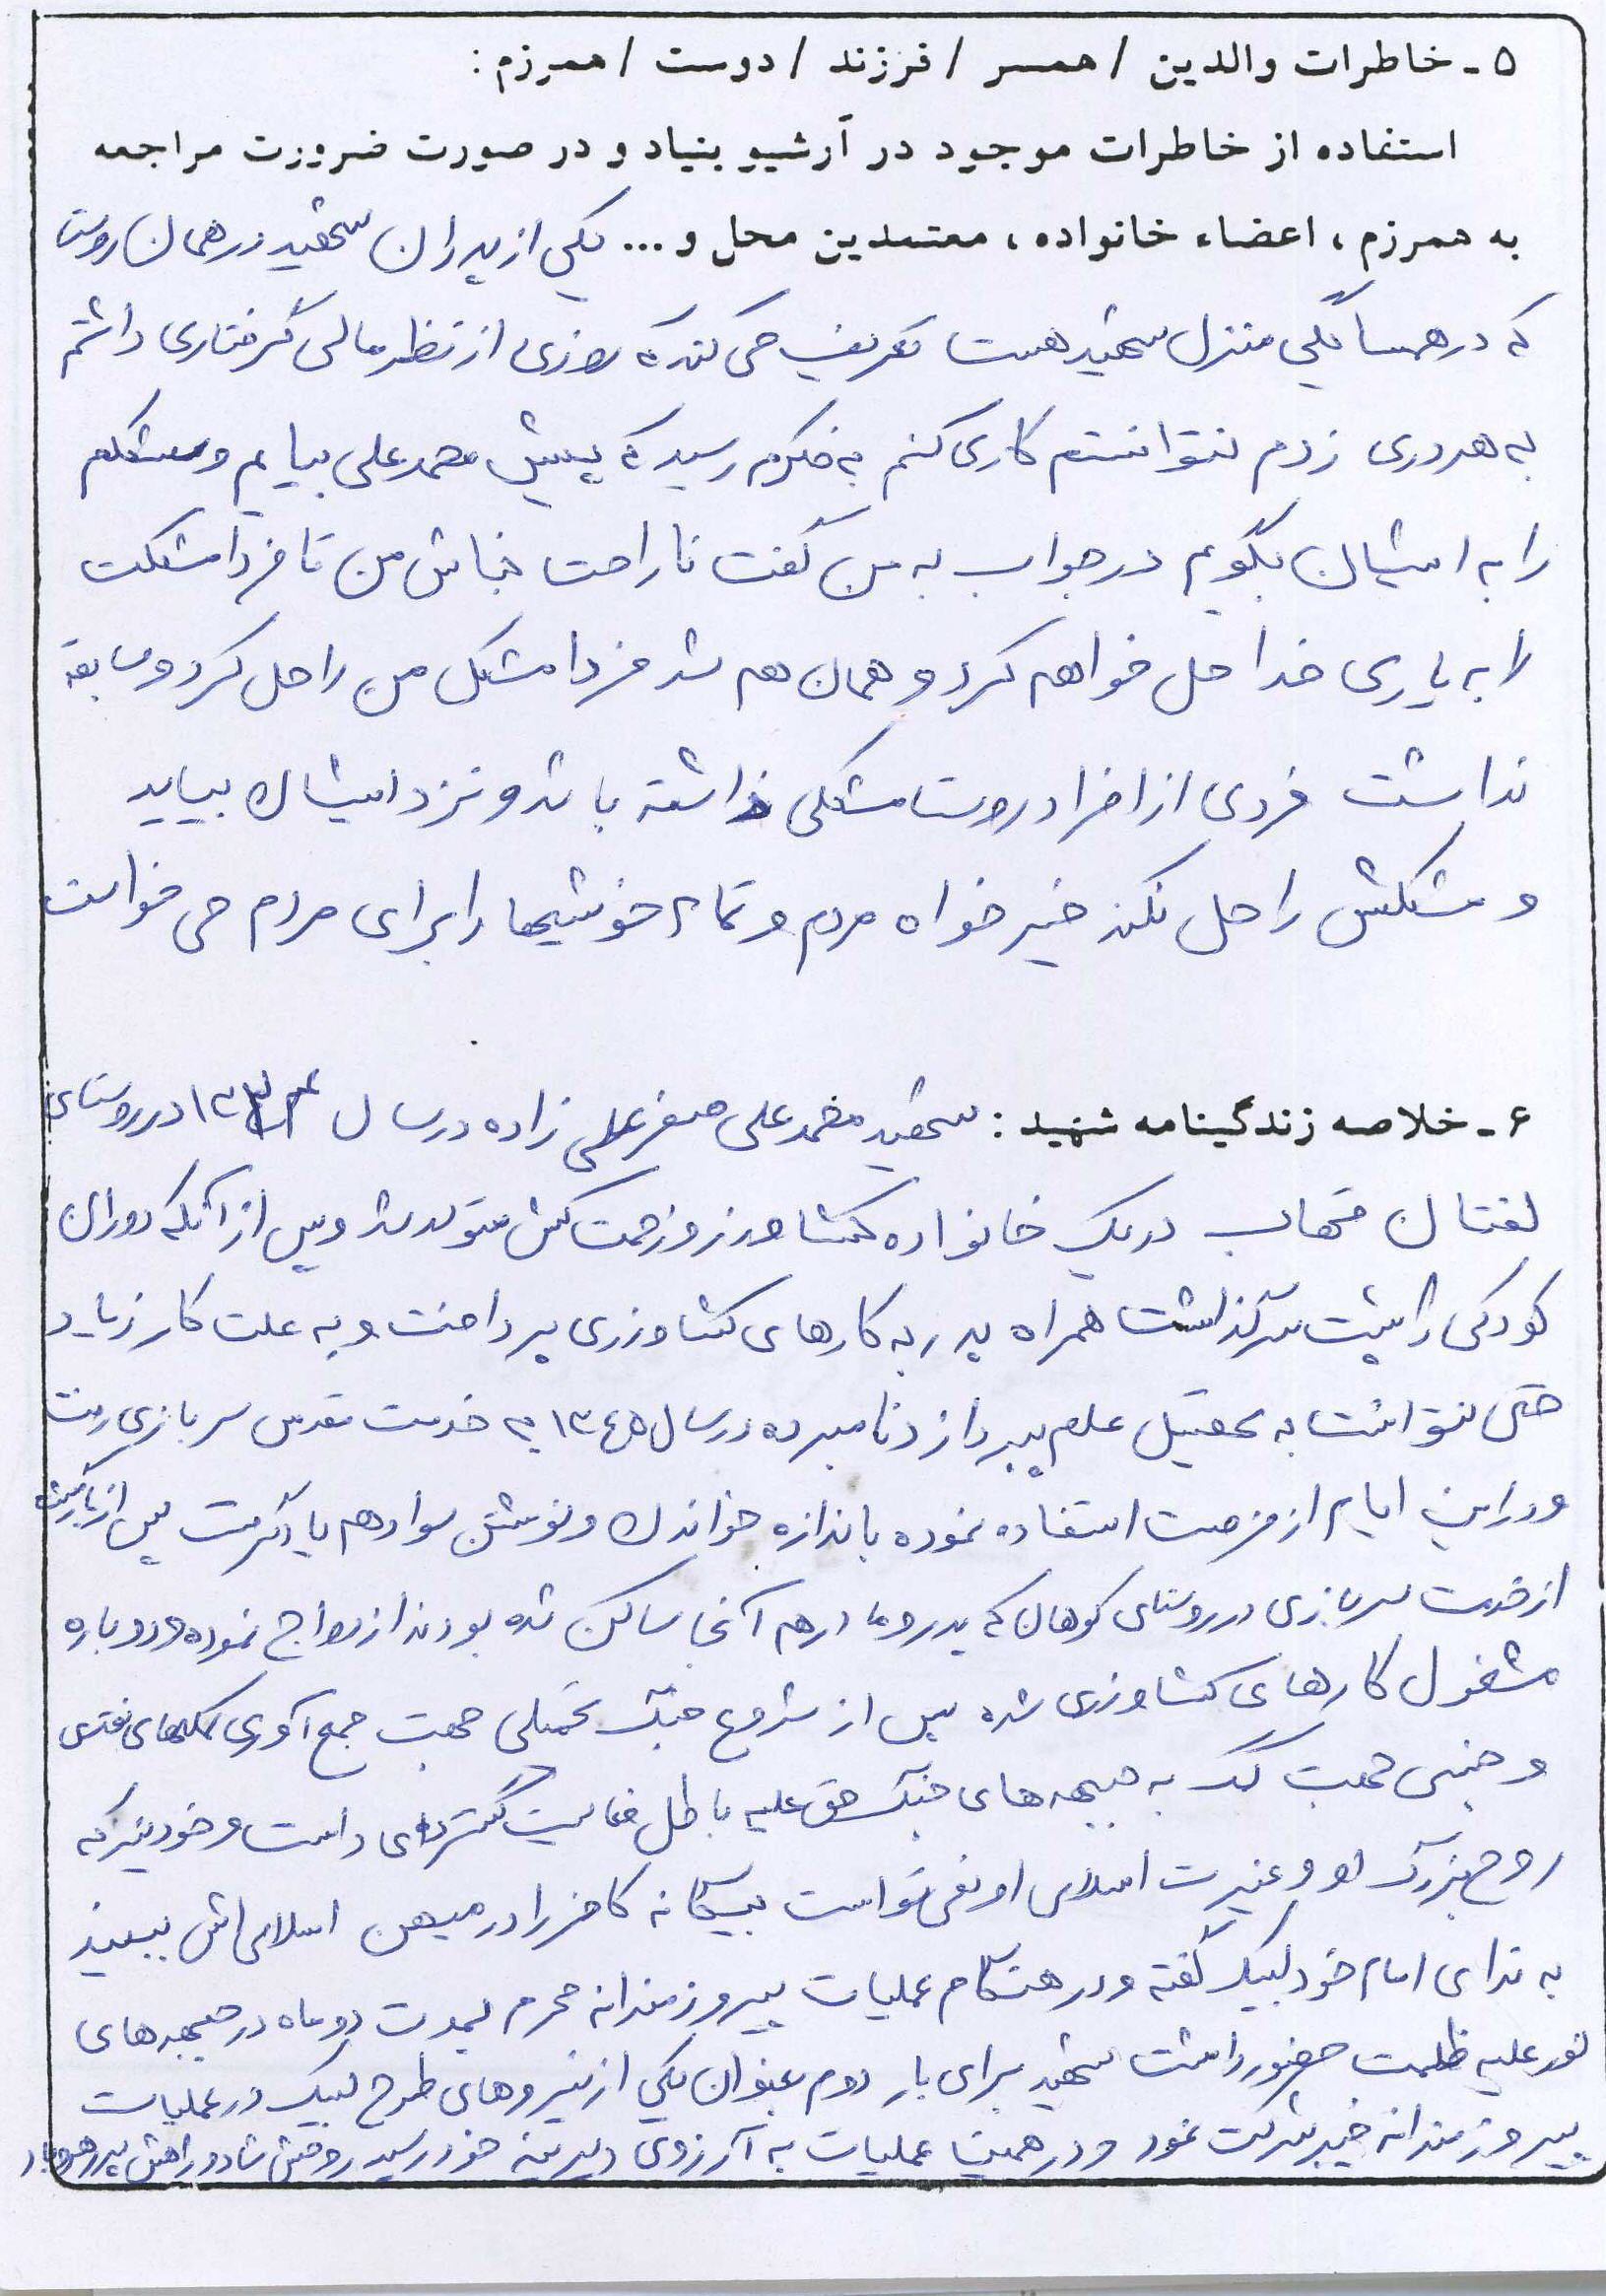 ۵ - خاطرات والدین / همسر / فرزند / دوست / همرزم :
استفاده از خاطرات موجود در آرشیو بنیاد و در صورت ضرورت مراجعه
به همرزم ، اعضاء خانواده ، معتمدین محل و ... یکی از پدران شهید در همان روستا
که در همسایگی منزل شهید هست تعریف می کند که روزی از نظر مالی گرفتاری داشتم
به هر دری زدم نتوانستم کاری کنم به فکرم رسید که پیش محمدعلی بیایم و مشکلم
را به ایشان بگویم در جواب به من گفت ناراحت نباش من تا فردا مشکلت
را به یاری خدا حل خواهم کرد و همان هم شد فردا مشکل من را حل کرد و سابقه
نداشت فردی از افراد روستا مشکلی داشته باشد و نزد ایشان بیاید
و مشکلش را حل نکند خیرخواه مردم و تمام خوشیها را برای مردم می خواست
۶ - خلاصه زندگینامه شهید : شهید محمدعلی صفرعلی زاده در سال در روستای
لفتان قهاب در یک خانواده کشاورز و زحمت کش متولد شد و پس از آنکه دوران
کودکی را پشت سر گذاشت همراه پدر به کارهای کشاورزی پرداخت و به علت کار زیاد
حتی نتوانست به تحصیل علم بپردازد نامبرده در سال ۱۳٤۵ به خدمت مقدس سربازی رفت
و در این ایام از فرصت استفاده نموده باندازه خواندن و نوشتن سواد هم یاد گرفت پس از بازگشت
از خدمت سربازی در روستای کوهان که پدر و مادر هم آنجا ساکن شده بودند ازدواج نموده و دوباره
مشغول کارهای کشاورزی شده پس از شروع جنگ تحمیلی جهت جمع آوری کمکهای نقدی
و جنسی جهت کمک به جبهه های جنگ حق علیه باطل فعالیت گسترده ای داشت و خود نیز که
روح بزرگ او و غیرت اسلامی او نمی توانست بیگانه کافر را در میهن اسلامی اش ببیند
به ندای امام خود لبیک گفته و در هنگام عملیات پیروزمندانه محرم بمدت دو ماه در جبهه های
نور علیه ظلمت حضور داشت شهید برای بار دوم بعنوان یکی از نیروهای طرح لبیک در عملیات
پیروزمندانه خیبر شرکت نمود و در همین عملیات به آرزوی دیرینه خود رسید روحش شاد و راهش پر رهرو باد